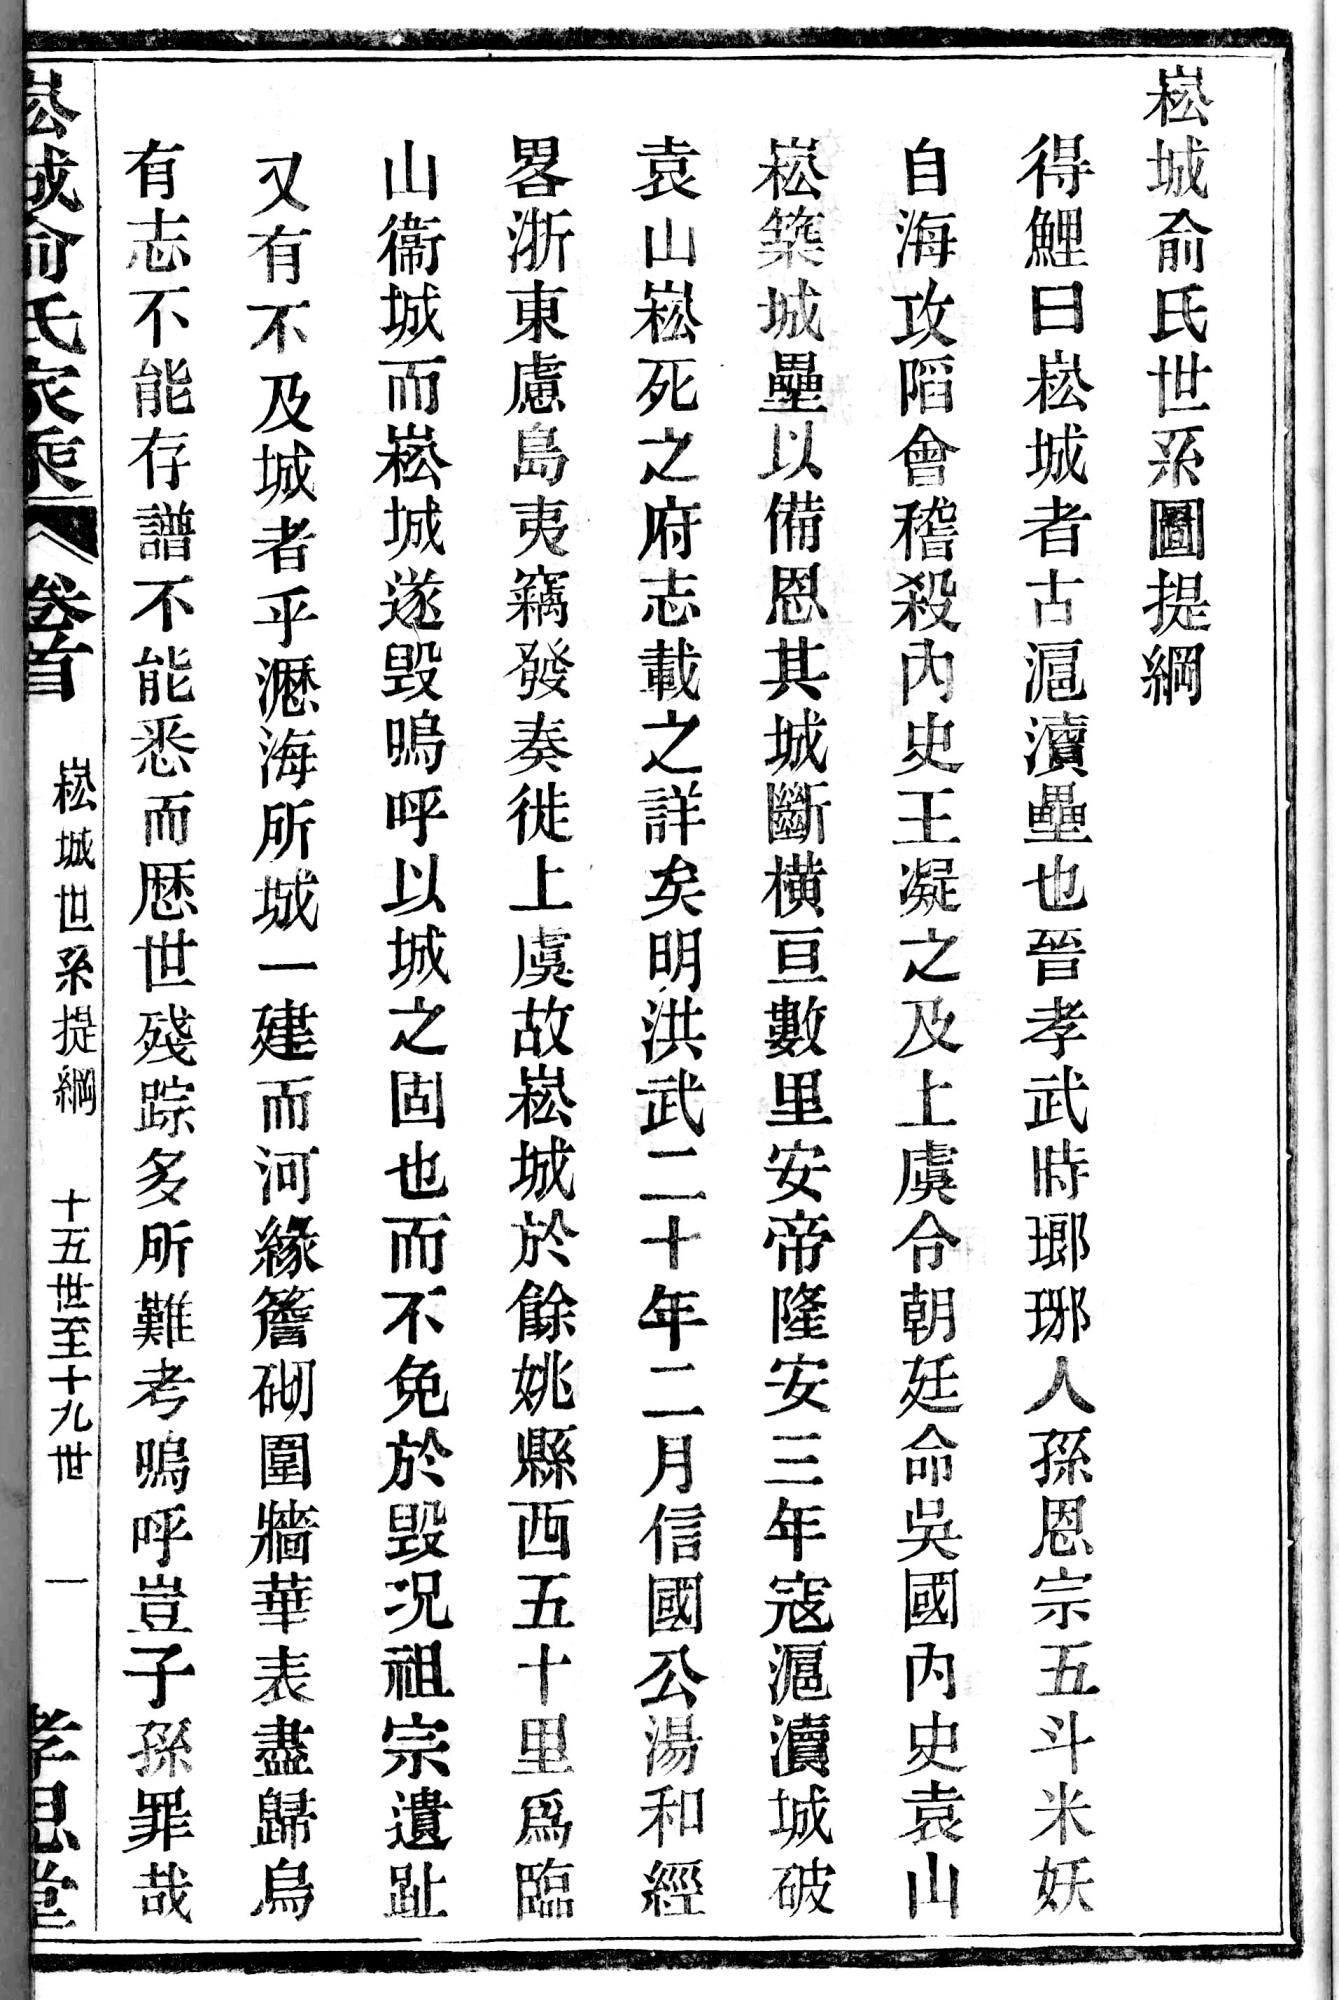 崧城俞氏世系圖提綱
得鯉曰崧城者古滬瀆壘也晉孝武時瑯琊人孫恩宗五斗米妖
自海攻䧟會稽殺內史王凝之及上虞令朝廷命吳國內史袁山
崧築城壘以備恩其城斷橫亘數里安帝隆安三年寇滬瀆城破
袁山崧死之府志載之詳矣明洪武二十年二月信國公湯和經
畧浙東慮島夷竊發奏徙上虞故崧城於餘姚縣西五十里為臨
山衞城而崧城遂毀嗚呼以城之固也而不免於毀况祖宗遺趾
又有不及城者乎瀝海所城一建而河緣簷砌圍牆華表盡歸烏
有志不能存譜不能悉而歷世殘踪多所難考嗚呼豈子孫罪哉
崧城俞氏家乘 卷首 崧城世系提綱 十五世至十九世 一 孝思堂